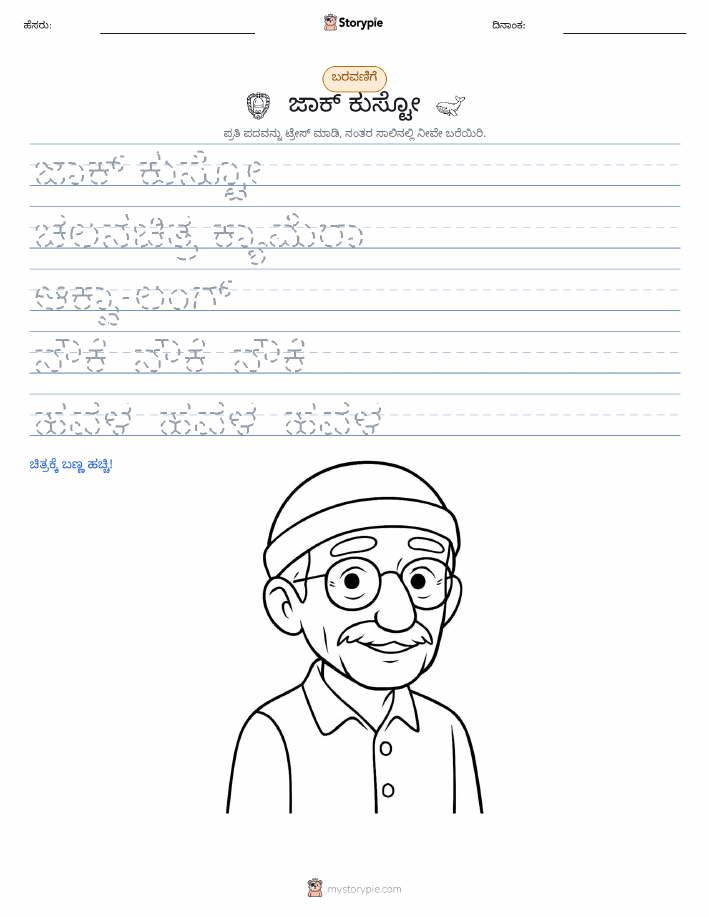 ಹೆಸರು:
Storypie
ದಿನಾಂಕ:
ಬರವಣಿಗೆ
ಜಾಕ್ ಕುಸ್ಟೋ
ಪ್ರತಿ ಪದವನ್ನು ಟ್ರೇಸ್ ಮಾಡಿ, ನಂತರ ಸಾಲಿನಲ್ಲಿ ನೀವೇ ಬರೆಯಿರಿ.
ಜಾಕ್ ಕುಸ್ಟೋ
ಚಲನಚಿತ್ರ ಕ್ಯಾಮೆರಾ
ಆಕ್ವಾ-ಲಂಗ್
ನೌಕೆ ನೌಕೆ ನೌಕೆ
ಹವಳ ಹವಳ ಹವಳ
ಚಿತ್ರಕ್ಕೆ ಬಣ್ಣ ಹಚ್ಚಿ!
mystorypie.com